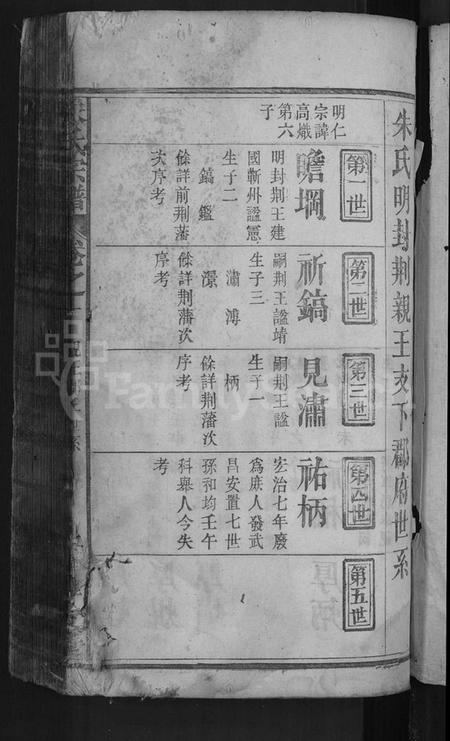 朱氏明封荆親王支下郡府世系
第一世
明仁
宗諱
高熾
第六
子
瞻堈
明封荆王建
國蘄州謚憲
生子二
鎬 鑑
餘詳前荆藩
次序考
第二世
祈鎬
嗣荆王謚靖
生子三
潚 溥
㵾
餘詳荆藩次
序考
第三世
見潚
嗣荆王謚
生子一
柄
餘詳荆藩次
序考
第四世
祐柄
宏治七年廢
為庶人發武
昌安置七世
孫和均壬午
科舉人今失
考
第五世
氏宗譜